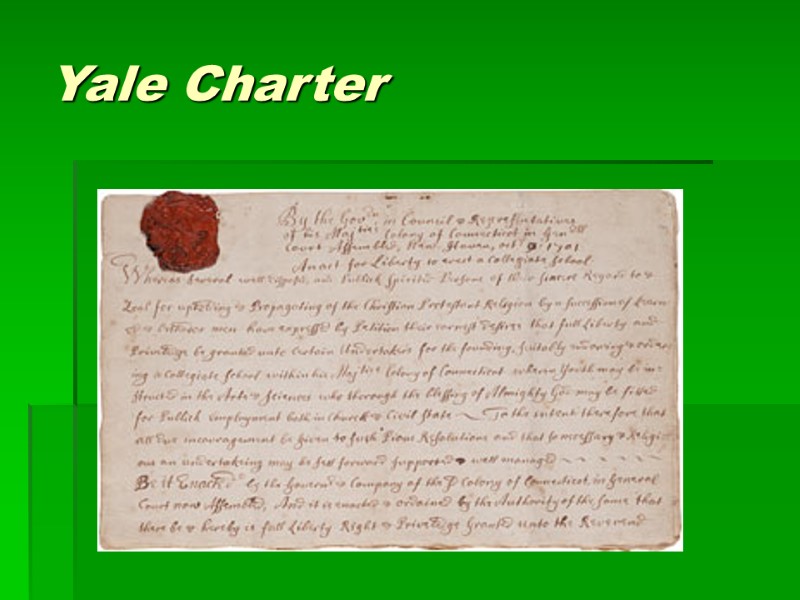 Yale Charter
By the Govn in Council & Representatives
of his Majties Colony of Connecticut in Genll
Court Assembled, New-Haven, octr 9: 1701
An act for Liberty to erect a Collegiate School
Whereas several well disposed, and Publick Spirited Persons of their sincere Regard to &
Zeal for upholding & Propagating of the Christian Protestant Religion by a succession of Learn
ed & Orthodox men have expressed by Petition their earnest desires that full Liberty and
Priviledge be granted unto Certain Undertakers for the founding, suitably endowing & order
ing a Collegiate School within his Majties Colony of Connecticut wherein Youth may be in=
structed in the Arts & Sciences who thorough the blessing of Almighty God may be fitted
for Publick employment both in Church & Civil State To the intent therefore that
all due encouragement be given to such Pious Resolutions and that so necessary & Religi
ous an undertakeing may be sett forward supported & well managed
Be it Enacted by the Governd & Company of the sd Colony of Connecticut, in General
Court now Assembled, And it is enacted & ordained by the Authority of the same that
there be & hereby is full Liberty Right & Priviledge Granted unto the Reverend